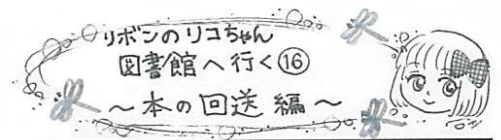 リボンのリコちゃん
図書館へ行く⑯
～本の回送編～